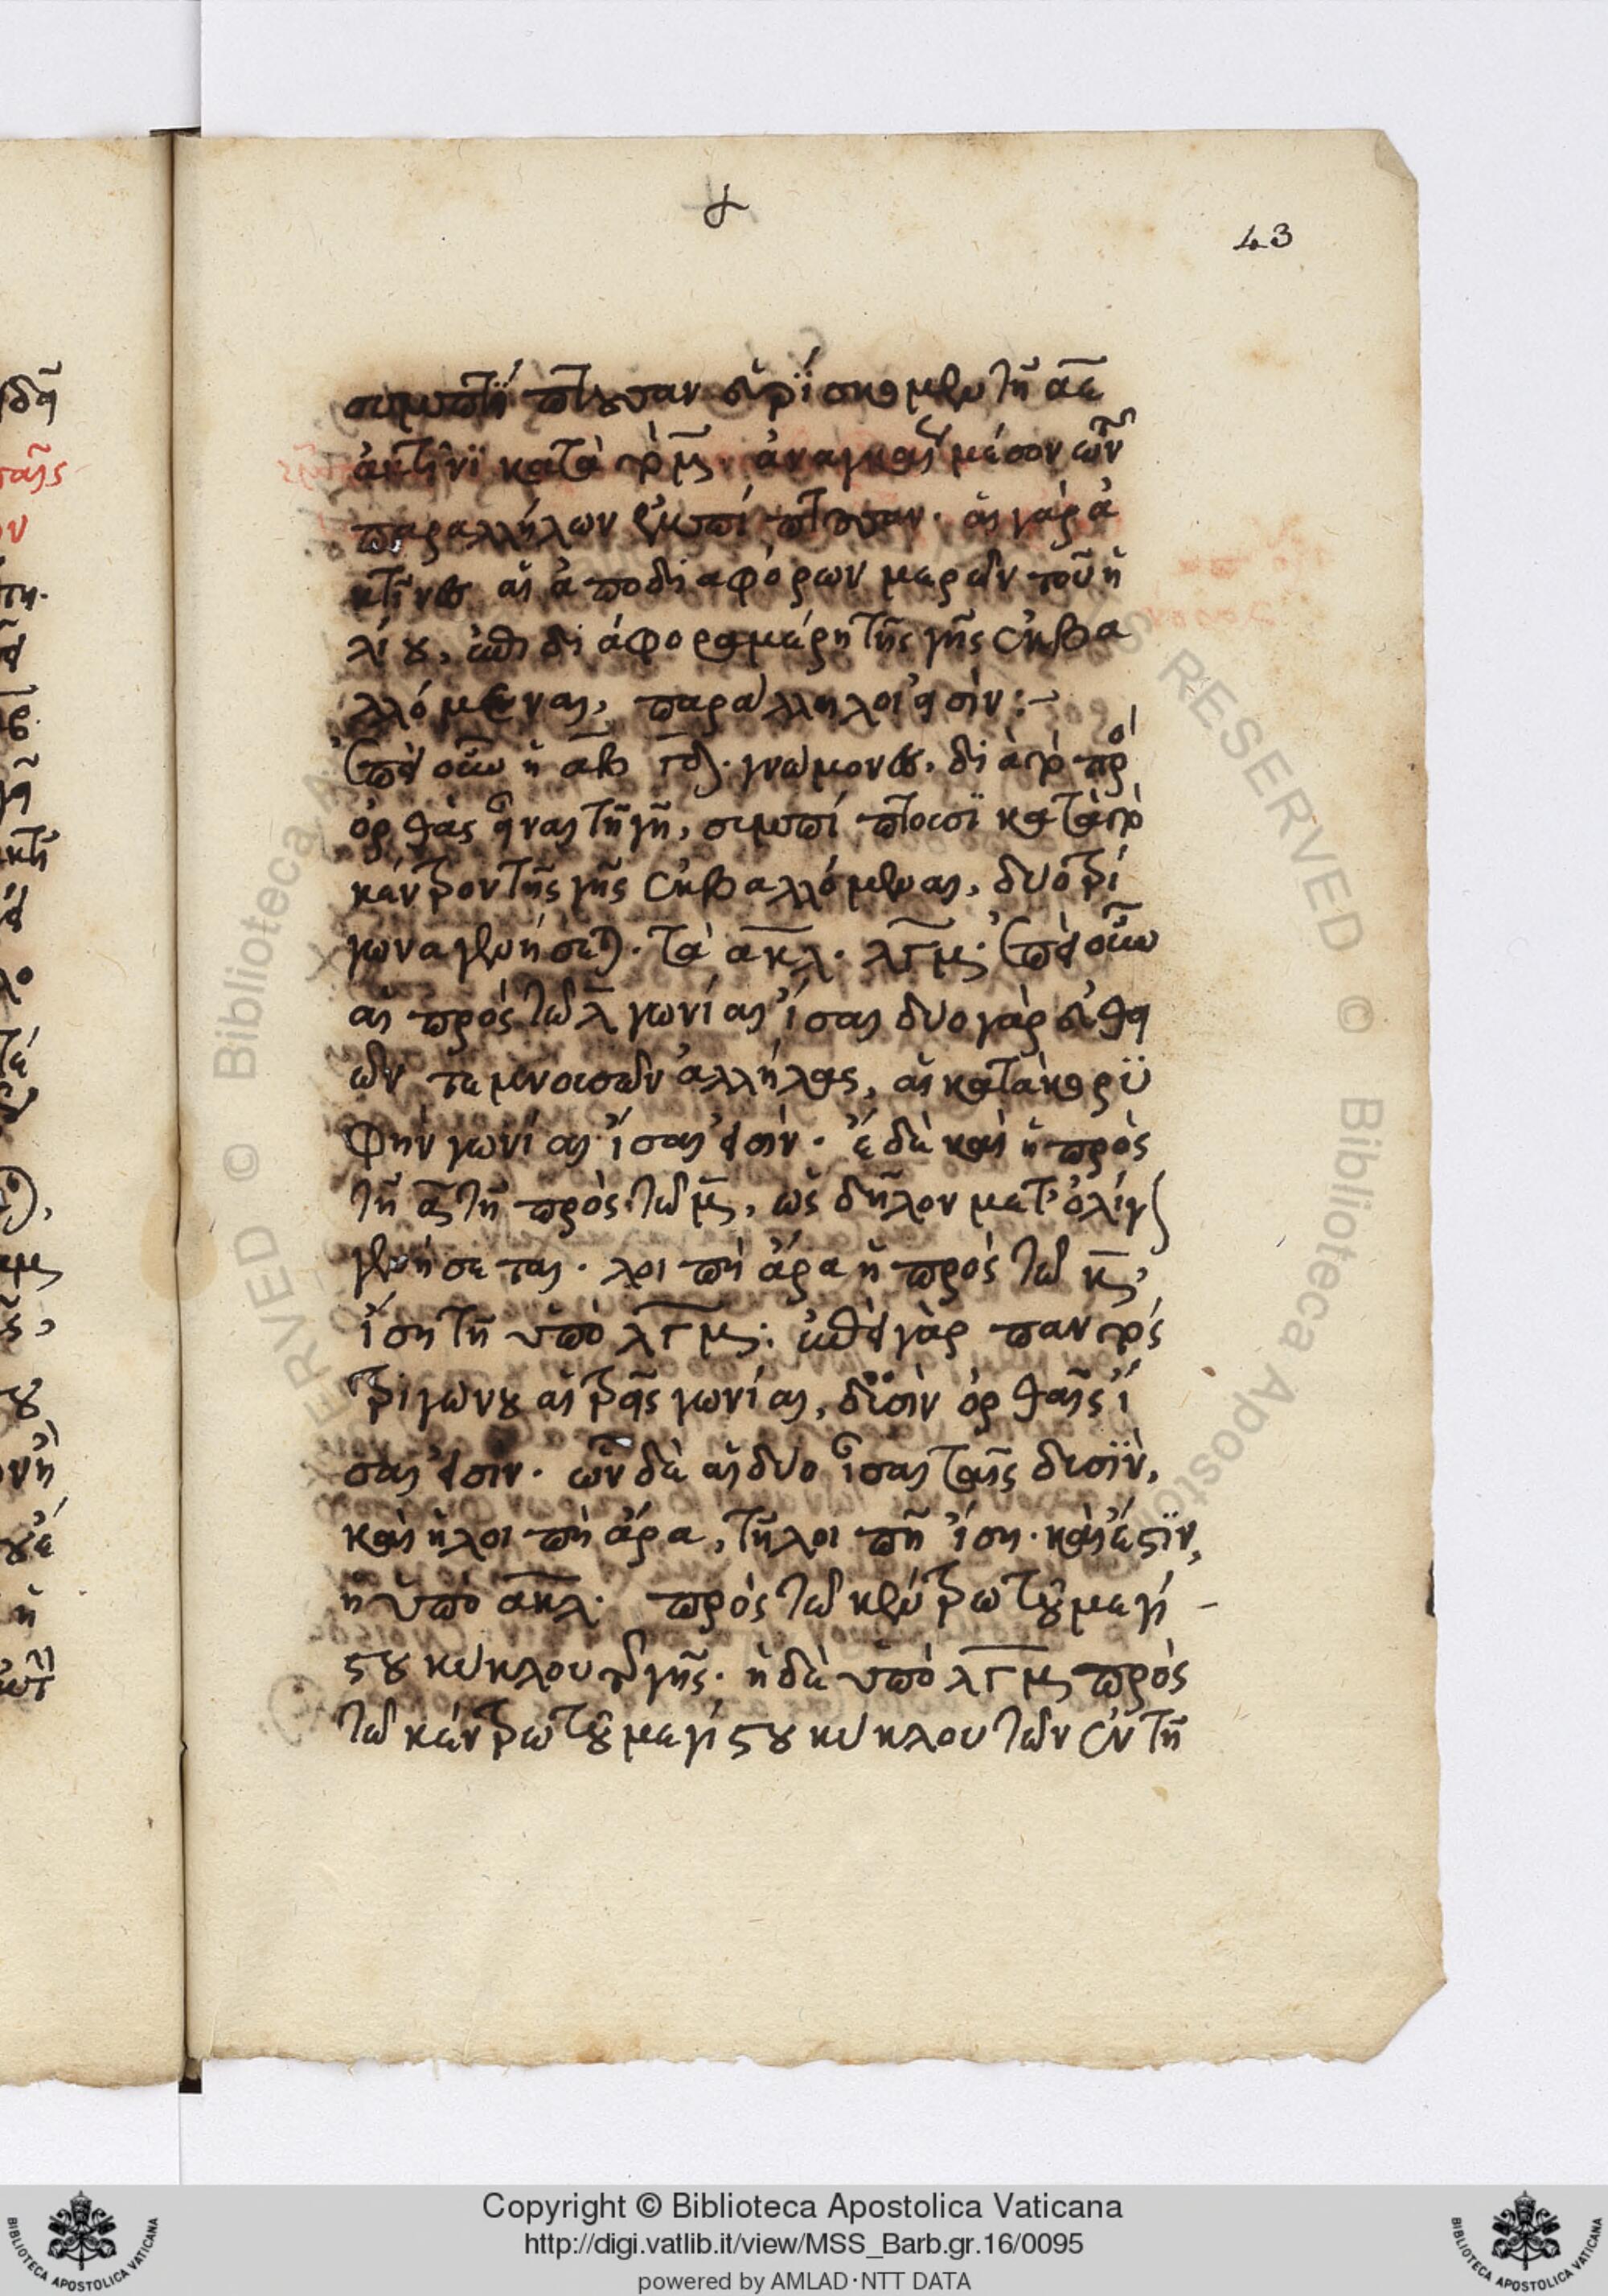 43
συμπίπτουσαν εὑρίσκομεν τῆ αε
ἀκτῖνι κατὰ τὸ μ. ἀναγκαῖ μέσον ὧν
παραλλήλων ἐμπίπτουσαν. αἱ γὰρ ἀ
κτῖνες αἱ ἀπο διαφόρων μερῶν τοῦ ἡ
λίου, ἐπὶ διάφορα μέρη τῆς γῆς ἐκβα
λλόμεναι, παράλληλοι εἰσὶν:-
ἐπεὶ οὖν ἡ αβ γδ. γνώμονες, διὰ τὸ πρὸ
ὀρθὰς εἶναι τῆ γῆ, συμπίπτουσϊ κατὰ τὸ
κέντρον τῆς γῆς ἐκβαλλόμεναι, δύο τρί
γωνα γενήσεται. τὰ ακλ. λγμ. ἐπεὶ οὖν
αἱ πρὸς τῶ λ γωνίαι ἴσαι δυο γὰρ εὐθει
ῶν τεμνουσῶν ἀλλήλας, αἱ κατὰ κορϋ
φὴν γωνίαι ἴσαι εἰσὶν. ἔ δὲ καὶ ἡ πρὸς
τῆ α τῆ πρὸς τῶ μ, ὡς δῆλον μετ' ὀλίγ
γενήσεται. λοιπὴ ἄρα ἡ πρὸς τῶ κ,
ἴση τῆ ὑπὸ λγμ: ἐπεὶ γὰρ παντὸς
τριγώνου αἱ τρεῖς γωνίαι, δϋσὶν ὀρθαῖς ἴ
σαι εἰσὶν. ὧν δὲ αἱ δυο ἴσαι ταῖς δυσϊν,
καὶ ἡ λοιπὴ ἄρα, τῆ λοιπῆ ἴση. καὶ ἔστϊν,
ἡ ὑπὸ ακλ. πρὸς τῶ κέντρω τοῦ μεγί
στου κύκλου τῆς γῆς. ἡ δὲ ὑπὸ λγμ πρὸς
τῶ κέντρω τοῦ μεγίστου κύκλου τῶν ἐν τῆ
Copyright © Biblioteca Apostolica Vaticana
http://digi.vatlib.it/view/MSS_Barb.gr.16/0095
powered by AMLAD·NTT DATA